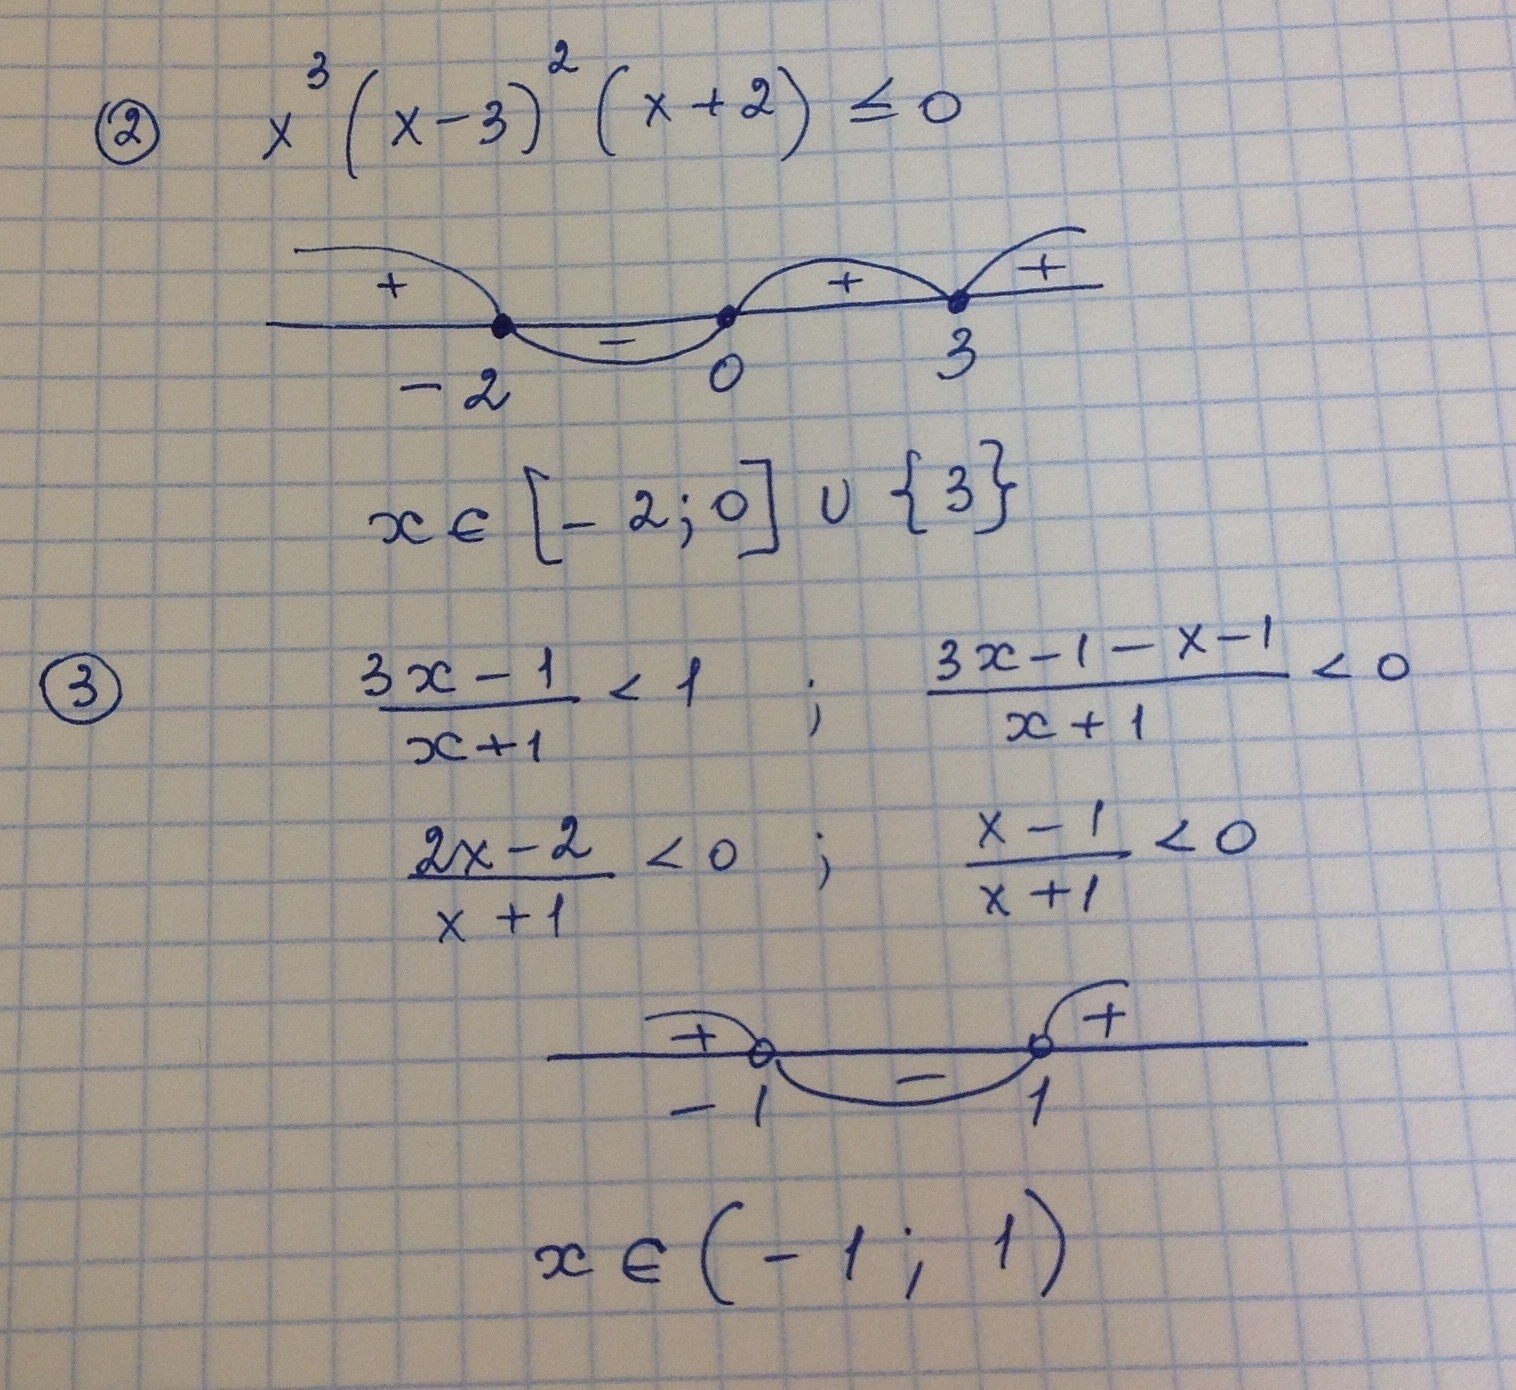 ② x³(x-3)²(x+2) ≤ 0
+ - + +
-2 0 3
x ∈ [-2;0] ∪ {3}
③ (3x-1)/(x+1) < 1 ; (3x-1-x-1)/(x+1) < 0
(2x-2)/(x+1) < 0 ; (x-1)/(x+1) < 0
+ - +
-1 1
x ∈ (-1; 1)